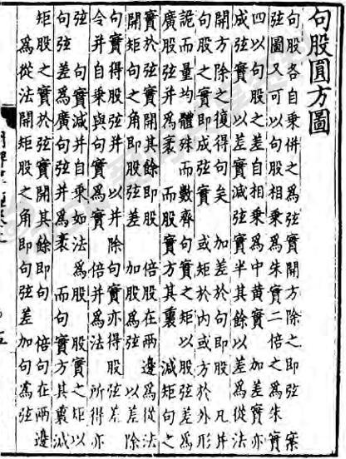 句股圓方圖
句股各自乘併之為弦實開方除之即弦案
弦圖又可以句股相乘為朱實二倍之為朱實
四以句股之差自相乘為中黃實 加差實亦
成弦實 以差實減弦實半其餘以差為從法
開方除之復得句矣 加差於句即股 凡并
句股之實即成弦實 或矩於內或方於外形
詭而量均體殊而數齊 句實之矩以股弦差為
廣股弦并為袤而股實方其裏 減矩句之
實於弦實開其餘即股 倍股在兩邊為從法
開矩句之角即股弦差 加股為弦 以差除
句實得股弦并 以并除句實亦得股弦差
令并自乘與句實為實 倍并為法 所得亦
矩 句實減并自乘如法為股 股實之矩以
句弦差為廣句弦并為袤 而句實方其裏減
矩股之實於弦實開其餘即句 倍句在兩邊
為從法開矩股之角即句弦差 加句為弦